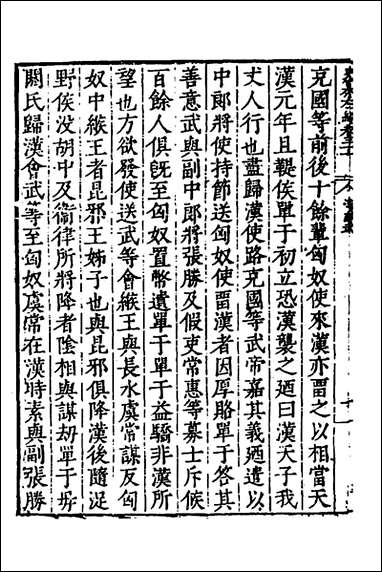 充國等前後十餘輩匈奴使來漢亦畱之以相當天
漢元年且鞮侯單于初立恐漢襲之廼曰漢天子我
丈人行也盡歸漢使路充國等武帝嘉其義廼遣以
中郞將使持節送匈奴使畱漢者因厚賂單于答其
善意武與副中郞將張勝及假吏常惠等募士斥候
百餘人俱旣至匈奴置幣遺單于單于益驕非漢所
望也方欲發使送武等會緱王與長水虞常謀反匈
奴中緱王者昆邪王姊子也與昆邪俱降漢後隨浞
野侯没胡中及衞律所將降者陰相與謀刼單于母
閼氏歸漢會武等至匈奴虞常在漢時素與副張勝